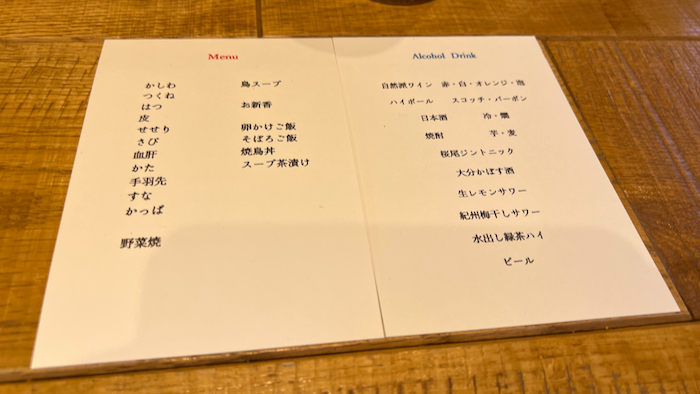 Menu
かしわ
つくね
はつ
皮
せせり
さび
血肝
かた
手羽先
すな
かっぱ
野菜焼
鳥スープ
お新香
卵かけご飯
そぼろご飯
焼鳥丼
スープ茶漬け
Alcohol Drink
自然派ワイン 赤・白・オレンジ・泡
ハイボール スコッチ・バーボン
日本酒 冷・燗
焼酎 芋・麦
桜尾ジントニック
大分かぼす酒
生レモンサワー
紀州梅干しサワー
水出し緑茶ハイ
ビール